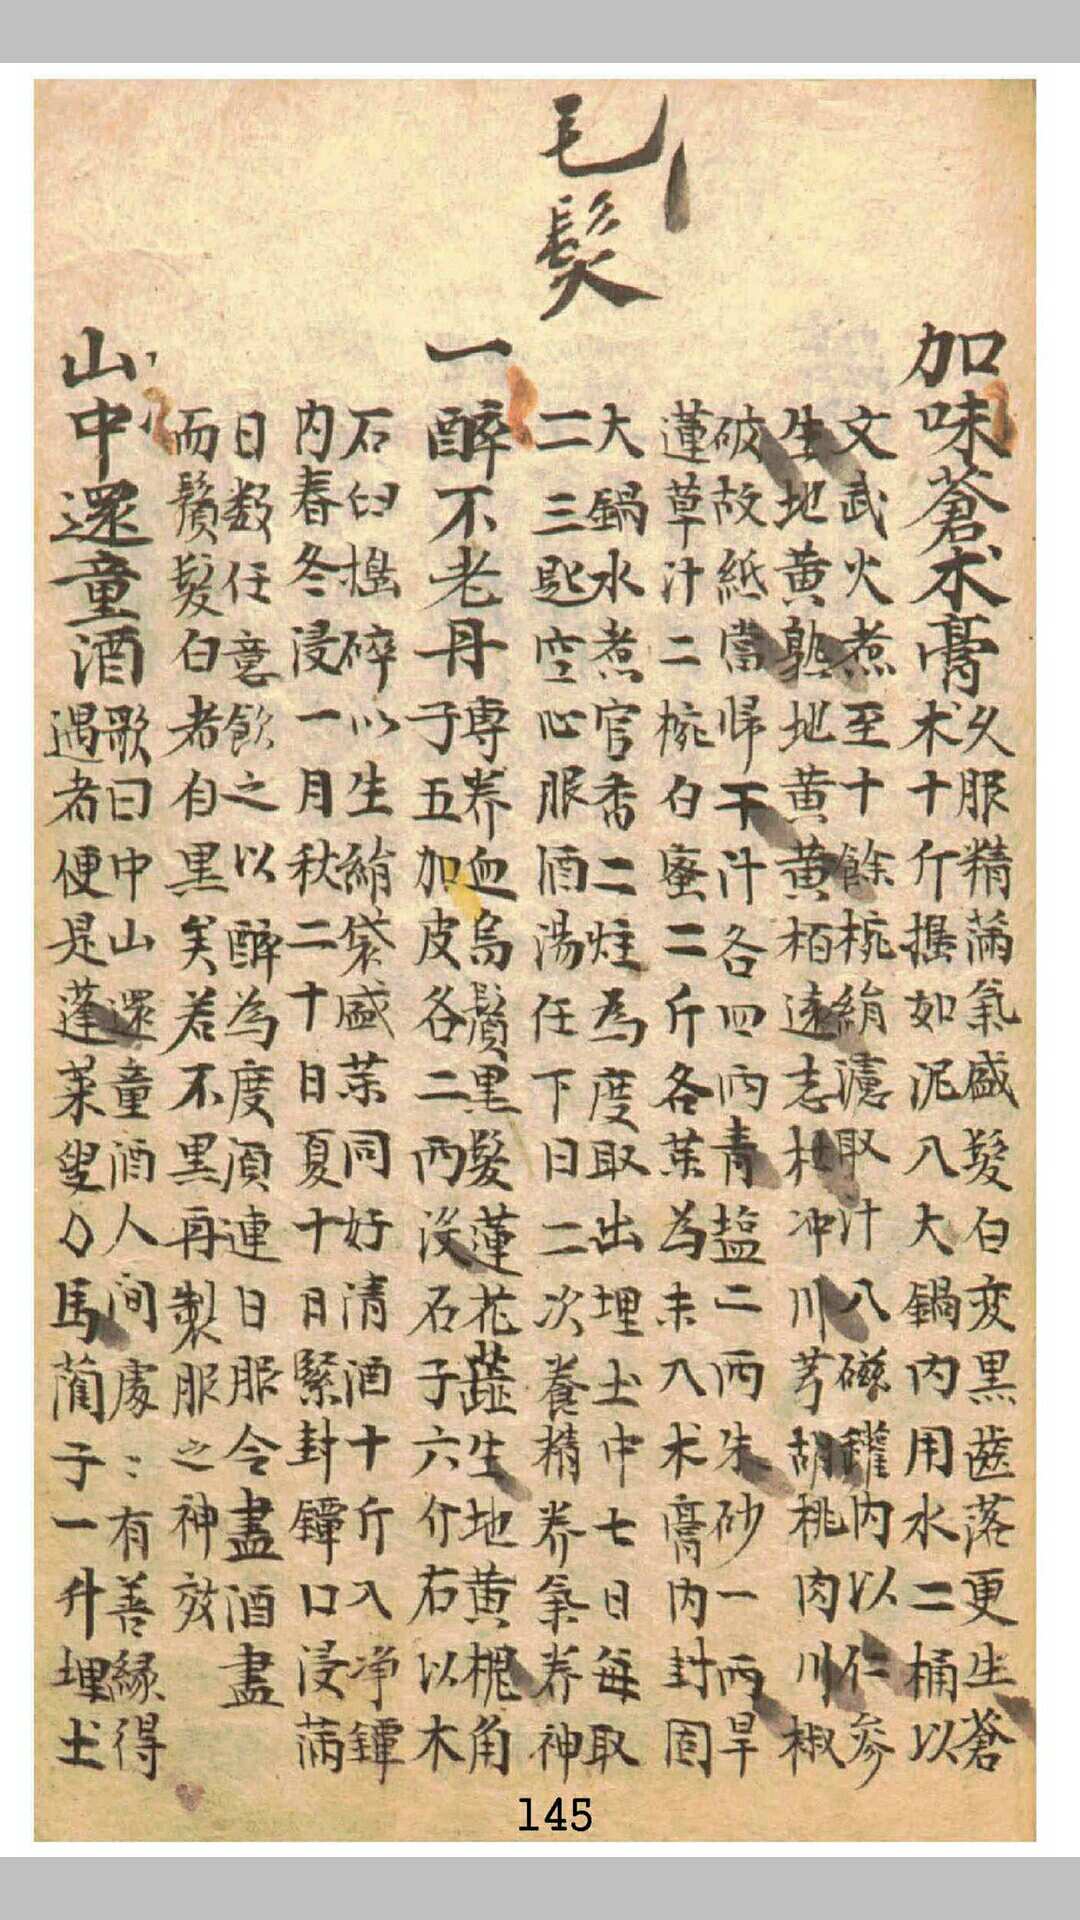 毛髮
加味蒼术膏
久服精滿氣盛髮白变黑齒落更生蒼
术十斤搗如泥八大鍋內用水二桶以
文武火煮至十餘椀絹濾取汁八磁罐內以仁参
生地黄熟地黄黄栢遠志杜冲川芎胡桃肉川椒
破故紙當帰下汁各四両青塩二両朱砂一両旱
蓮草汁二椀白蜜二斤各茱為末入术膏內封固
大鍋水煮官香二炷為度取出埋土中七日每取
二三匙空心服酒湯任下日二次養精养氣养神
一醉不老丹
専养血烏鬚黑髮蓮花蕋生地黄槐角
子五加皮各二両沒石子六介右以木
石臼搗碎以生絹袋盛茱同好清酒十斤入净鐔
內春冬浸一月秋二十日夏十日緊封鐔口浸滿
日数任意飲之以醉為度湏連日服令盡酒盡
而鬚髮白者自黑矣若不黑再製服之神效
山中還童酒
歌曰中山還童酒人間處〻有善緣得
遇者便是蓬萊叟方馬藺子一升埋土
145